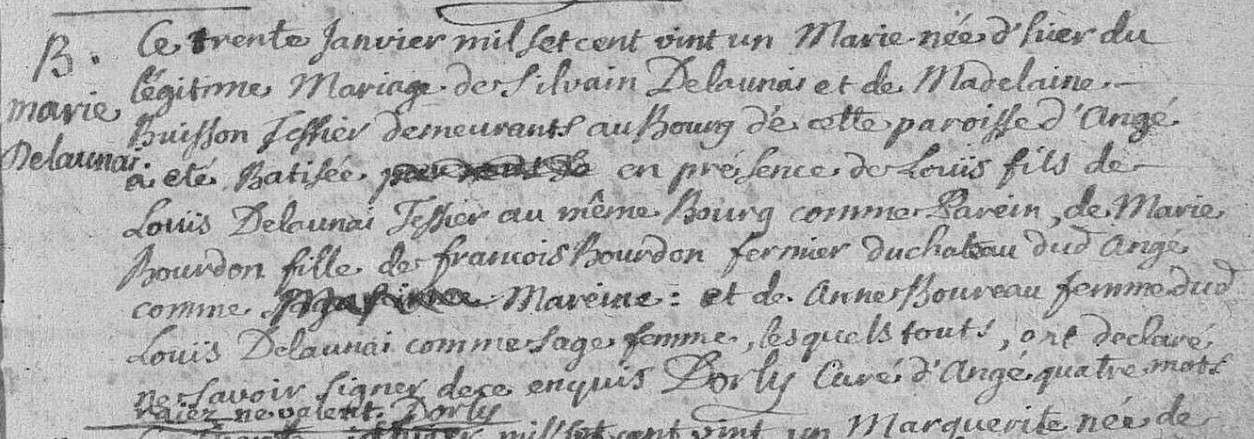 B.
marie
Delaunai
Ce trente Janvier mil set cent vint un Marie née d'hier du
légitime Mariage de Silvain Delaunai et de Madelaine
Buisson Tessier demeurants au Bourg de cette paroisse d'Angé
a eté Batisée en présence de Louïs fils de
Louïs Delaunai Tessier au même Bourg comme Parein, de Marie
Bourdon fille de francois Bourdon fermier du chateau dud Angé
comme Mareine : et de Anne Boureau femme dud
Louïs Delaunai comme sage femme, lesquels touts, ont declaré
ne savoir signer de ce enquis Dorly Curé d'Angé quatre mots
raiez ne valent. Dorly
mil set cent vint un Marguerite née de